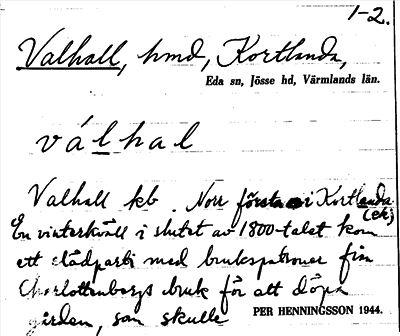 1-2.
Valhall, hmd, Kortlanda,
Eda sn, Jösse hd, Värmlands län.
válhal
Valhall kb. Norr första i Kortlanda (ek)
En vinterkväll i slutet av 1800-talet kom
ett slädparti med brukspatroner från
Charlottenbergs bruk för att döpa
gården, som skulle
PER HENNINGSSON 1944.